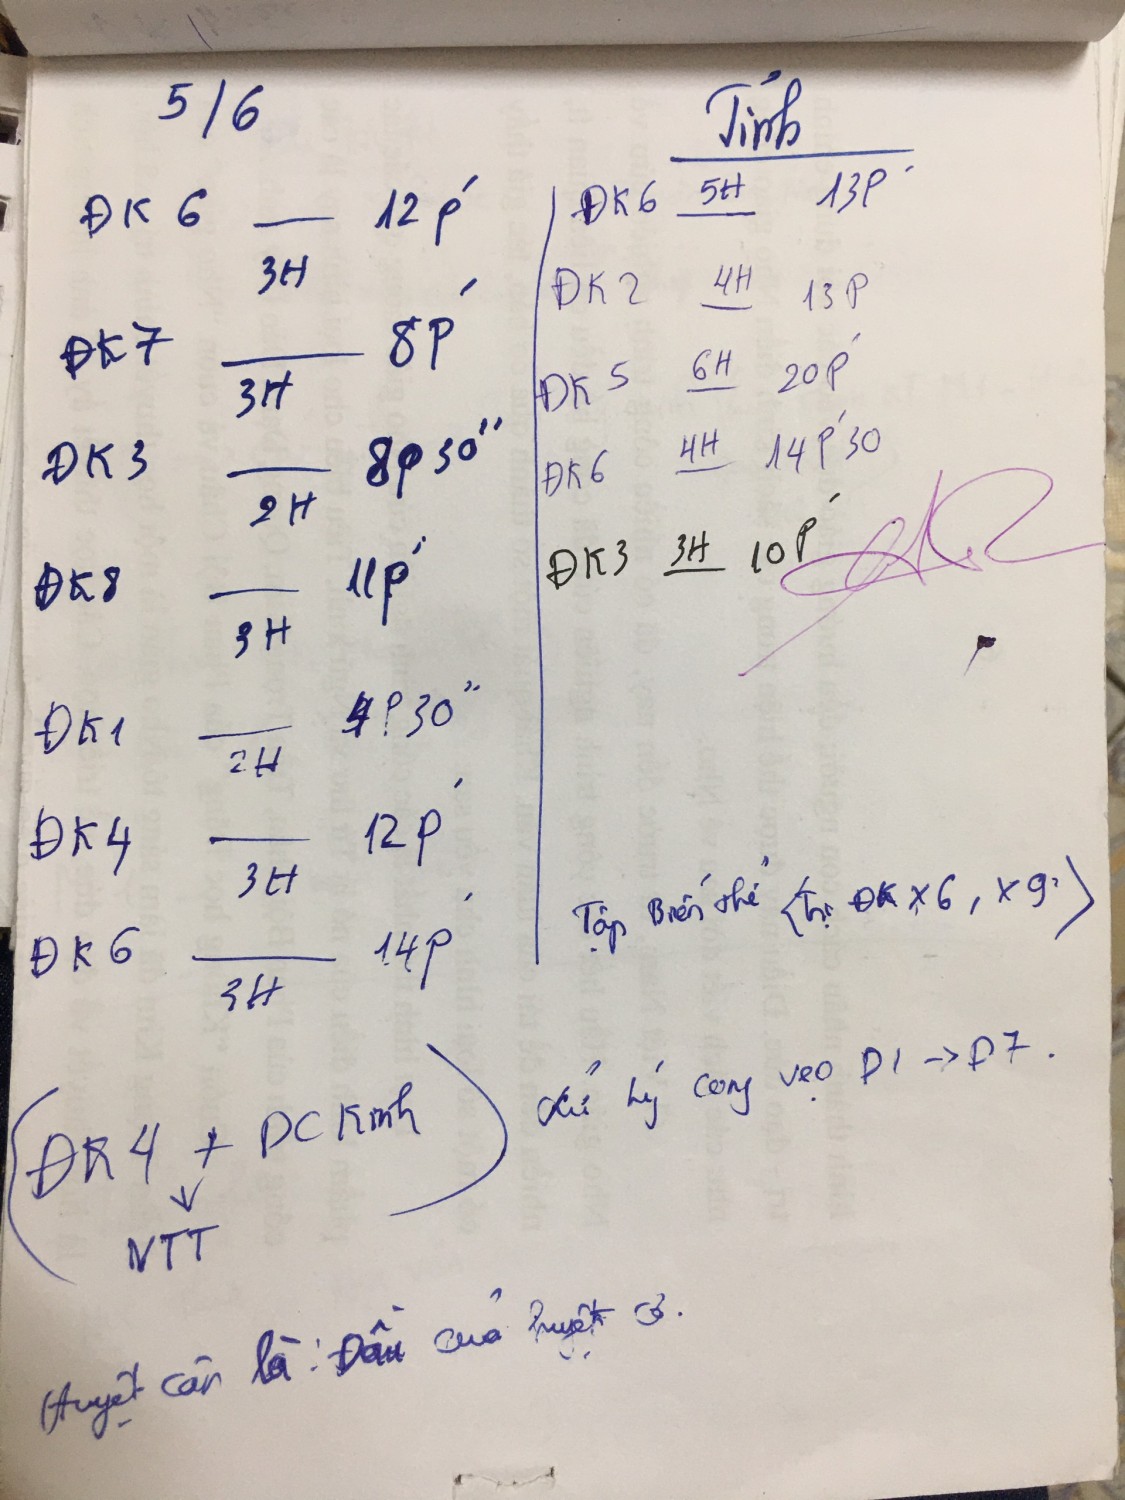 5/6
ĐK 6 — 12p'
3H
ĐK7 — 8p'
3H
ĐK3 — 8p30''
2H
ĐK8 — 11p'
3H
ĐK1 — 4p30''
2H
ĐK4 — 12p'
3H
ĐK6 — 14p'
3H
Tính
ĐK6 5H 13P'
ĐK2 4H 13P
ĐK5 6H 20P'
ĐK6 4H 14P'30
ĐK3 3H 10P'
Tập Biến thể ĐK X6, X9
(ĐK4 + DC Kinh) xử lý cong vẹo D1 → D7.
↓
NTT
Huyệt cân là: Đầu của huyệt cơ.